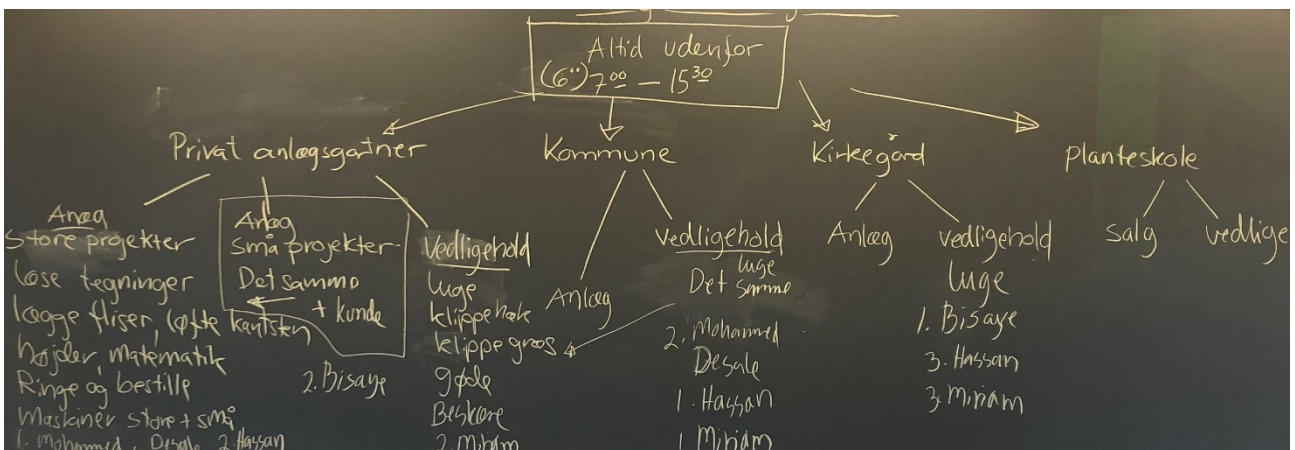 Altid udenfor
(6⁰⁰) 7⁰⁰ – 15³⁰
Privat anlægsgartner
Anlæg
Store projekter
læse tegninger
lægge fliser, løfte kantsten
højder, matematik
Ringe og bestille
Maskiner store + små
1. Mohammed. Desale 2. Hassan
Anlæg
Små projekter
Det samme
+ kunde
2. Bisaye
Vedligehold
luge
klippe hæk
klippe græs
gøde
Beskære
2. Miriam
Kommune
Anlæg
Vedligehold
luge
Det samme
2. Mohammed
Desale
1. Hassan
1. Miriam
Kirkegård
Anlæg
vedligehold
luge
1. Bisaye
3. Hassan
3. Miriam
Planteskole
salg
vedlige